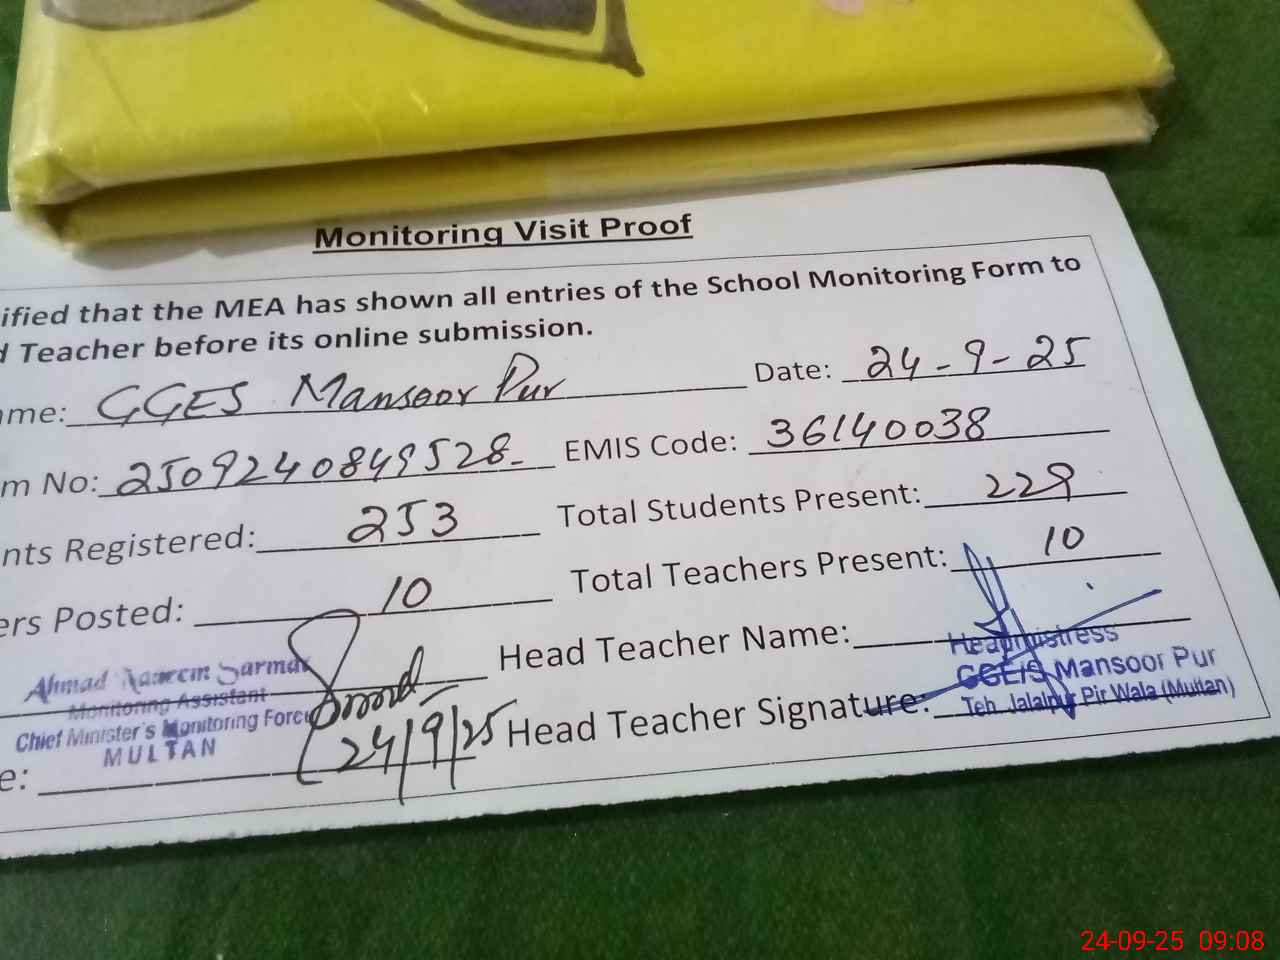 Monitoring Visit Proof
ified that the MEA has shown all entries of the School Monitoring Form to
d Teacher before its online submission.
ame: GGES Mansoor Pur Date: 24-9-25
m No: 2509240849528- EMIS Code: 36140038
nts Registered: 253 Total Students Present: 229
ers Posted: 10 Total Teachers Present: 10
Head Teacher Name:
Head Teacher Signature:
Ahmad Naeem Sarmad
Monitoring Assistant
Chief Minister's Monitoring Force
MULTAN
e: 24/9/25
Headmistress
GGE/S Mansoor Pur
Teh. Jalalpur Pir Wala (Multan)
24-09-25 09:08